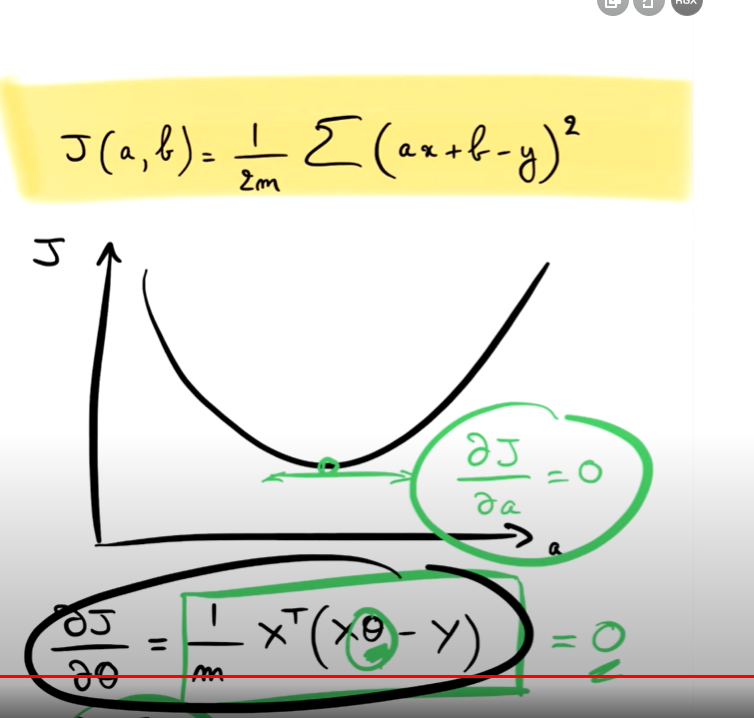 RGX
J(a,b) = 1/2m Σ(ax+b-y)²
J
∂J/∂a = 0
a
∂J/∂θ = 1/m X^T(Xθ - Y) = 0